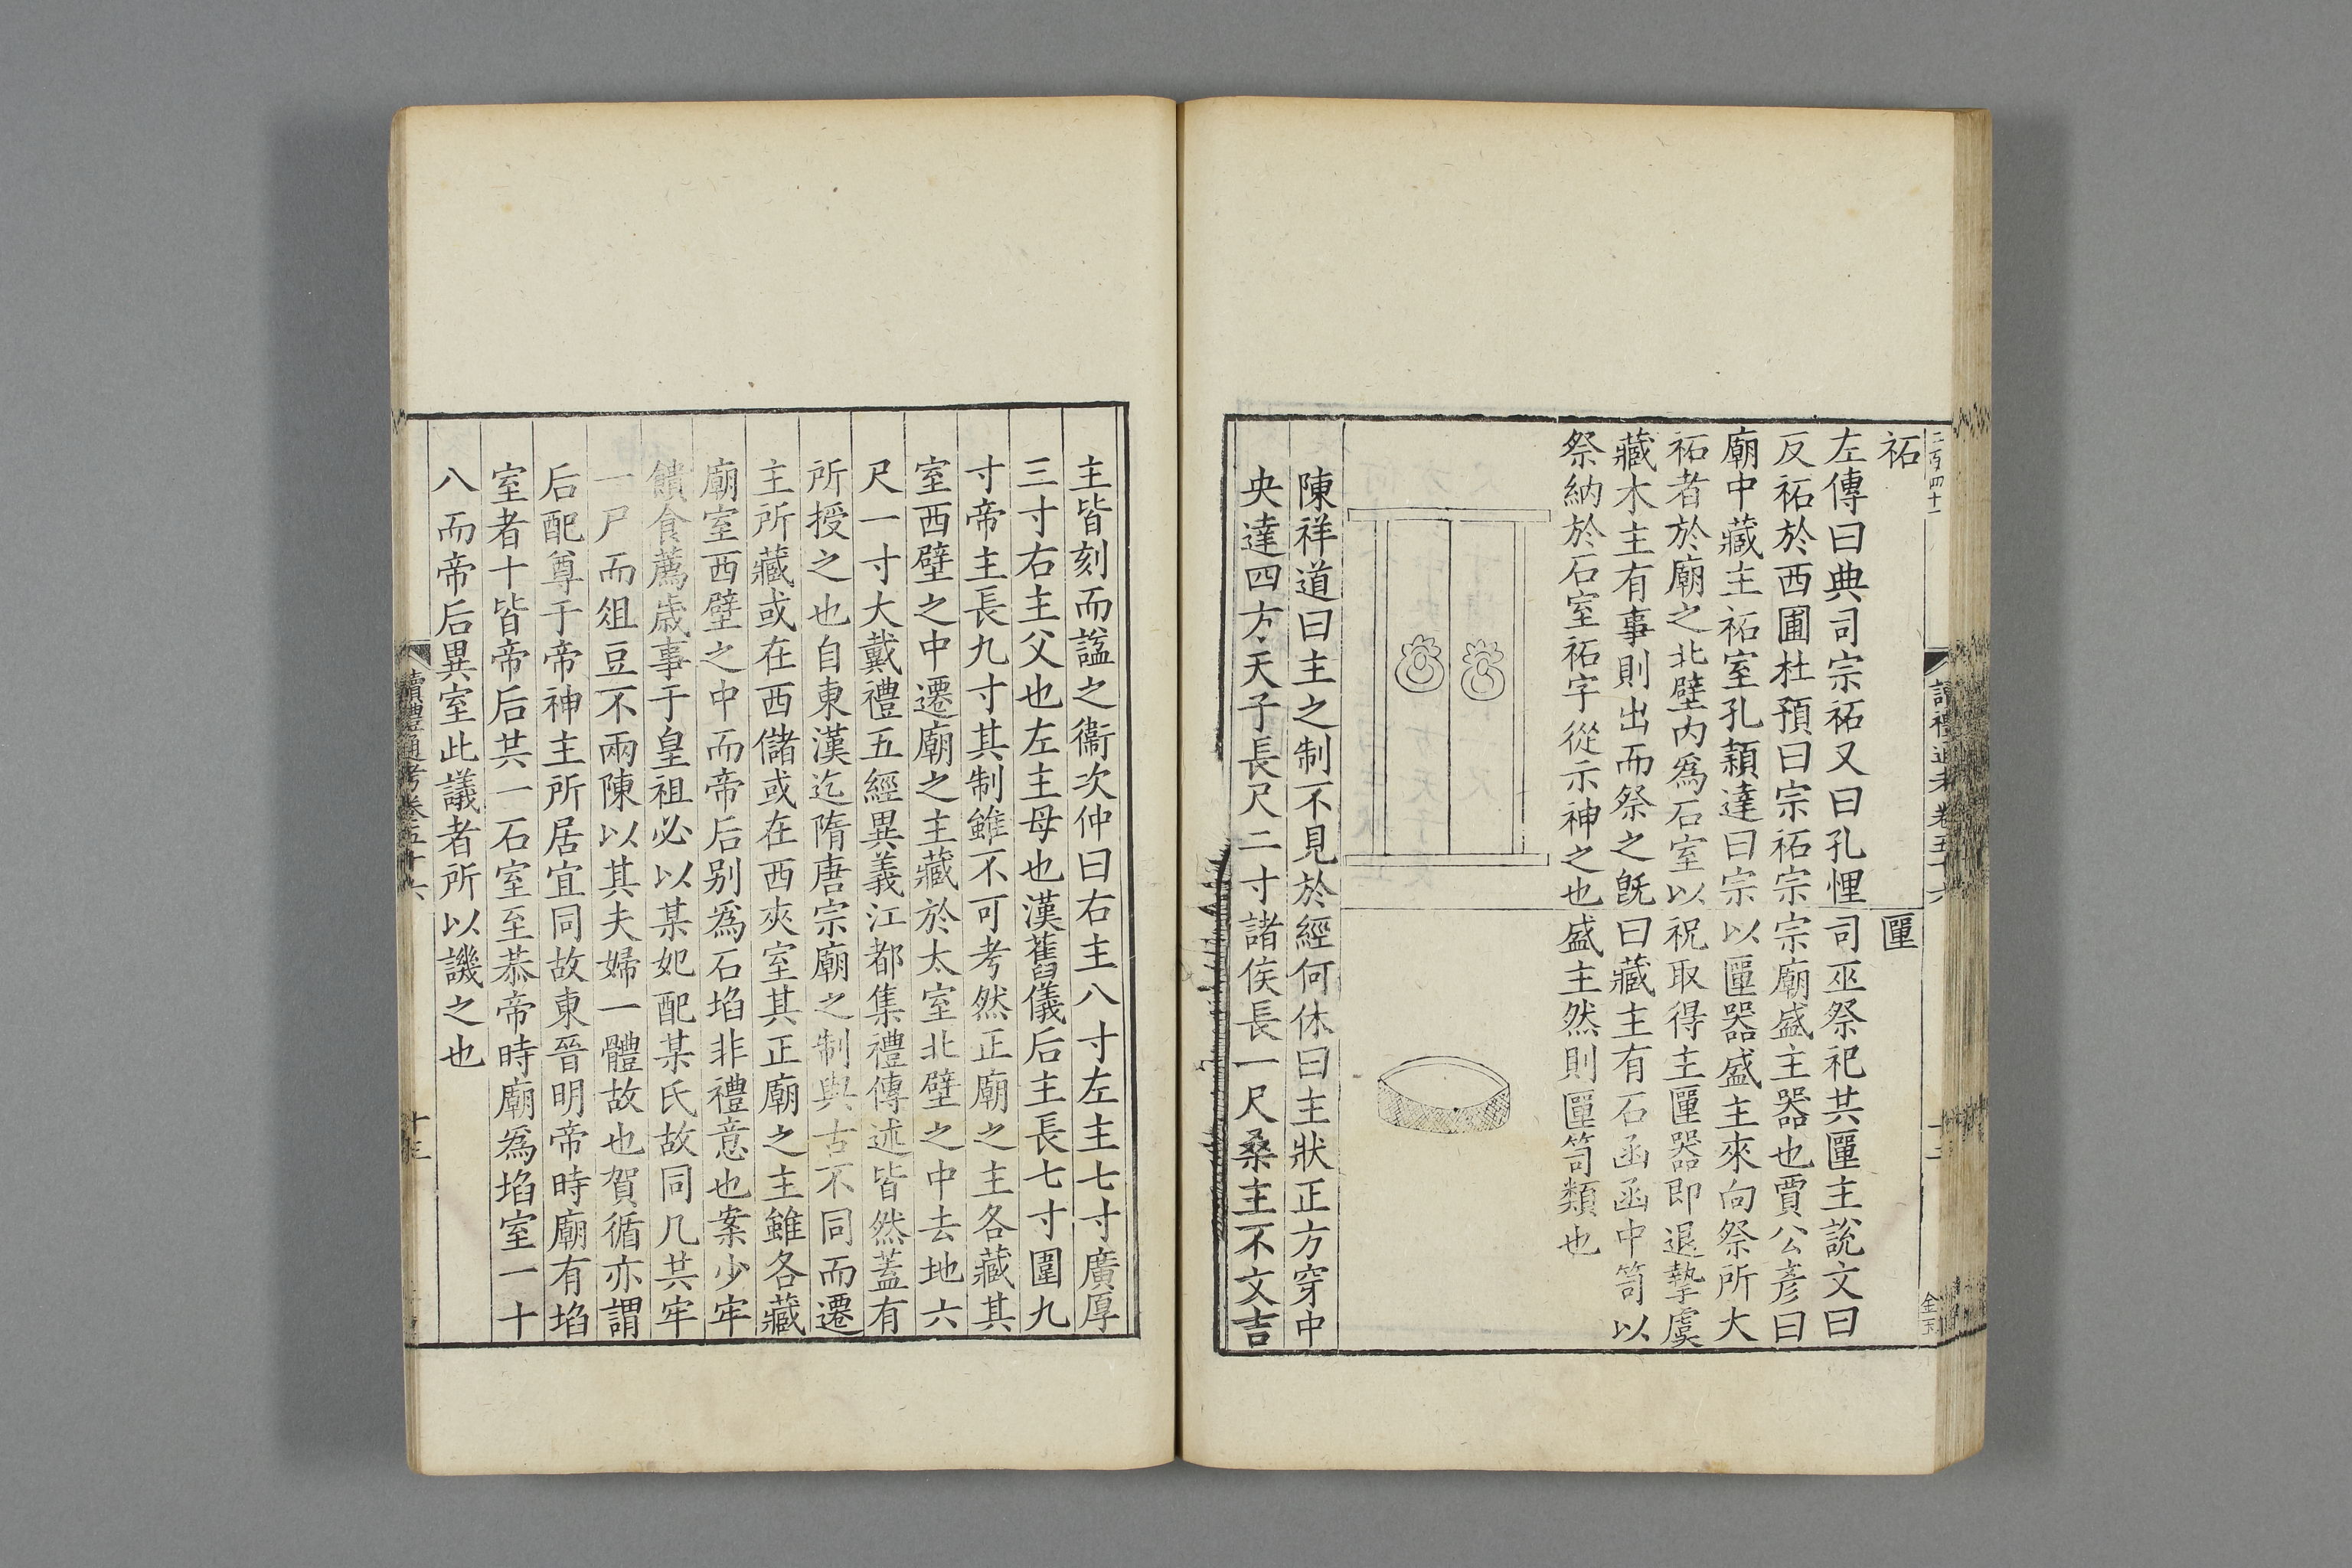 二百四十一
讀禮通考卷五十六
十二
金玉
祏
左傳曰典司宗祏又曰孔悝
反祏於西圃杜預曰宗祏宗
廟中藏主祏室孔穎達曰宗
祏者於廟之北壁内爲石室以
藏木主有事則出而祭之旣
祭納於石室祏字從示神之也
匰
司巫祭祀共匰主說文曰
宗廟盛主器也賈公彥曰
以匰器盛主來向祭所大
祝取得主匰器即退摯虞
曰藏主有石函函中笥以
盛主然則匰笥類也
陳祥道曰主之制不見於經何休曰主狀正方穿中
央達四方天子長尺二寸諸侯長一尺桑主不文吉
主皆刻而諡之衞次仲曰右主八寸左主七寸廣厚
三寸右主父也左主母也漢舊儀后主長七寸圍九
寸帝主長九寸其制雖不可考然正廟之主各藏其
室西壁之中遷廟之主藏於太室北壁之中去地六
尺一寸大戴禮五經異義江都集禮傳述皆然蓋有
所授之也自東漢迄隋唐宗廟之制與古不同而遷
主所藏或在西儲或在西夾室其正廟之主雖各藏
廟室西壁之中而帝后别爲石埳非禮意也案少牢
饋食薦歲事于皇祖必以某妃配某氏故同几共牢
一尸而俎豆不兩陳以其夫婦一體故也賀循亦謂
后配尊于帝神主所居宜同故東晉明帝時廟有埳
室者十皆帝后共一石室至恭帝時廟爲埳室一十
八而帝后異室此議者所以譏之也
讀禮通考卷五十六
十三